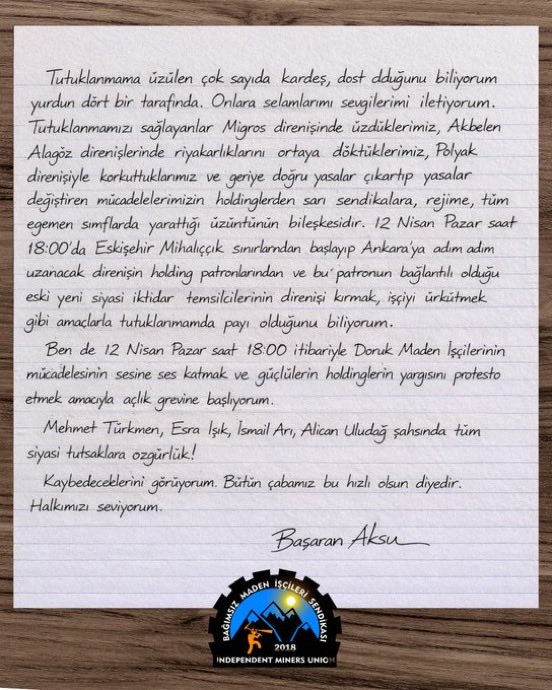 Tutuklanmama üzülen çok sayıda kardeş, dost dduğunu biliyorum
yurdun dört bir tarafında. Onlara selamlarımı sevgilerimi iletiyorum.
Tutuklanmamızı sağlayanlar Migros direnişinde üzdüklerimiz, Akbelen
Alagöz direnişlerinde riyakarlıklarını ortaya döktüklerimiz, Polyak
direnişiyle korkuttuklarımız ve geriye doğru yasalar çıkartıp yasalar
değiştiren mücadelelerimizin holdinglerden sarı sendikalara, rejime, tüm
egemen sımflarda yarattığı üzüntünün bileşkesidir. 12 Nisan Pazar saat
18:00'da Eskişehir Mihalıççık sınırlarndan başlayıp Ankara'ya adım adım
uzanacak direnişin holding patronlarından ve bu patronun bağlantılı olduğu
eski yeni siyasi iktidar temsilcilerinin direnişi kırmak, işçiyi ürkütmek
gibi amaçlarla tutuklanmamda payı olduğunu biliyorum.
Ben de 12 Nisan Pazar saat 18:00 itibariyle Doruk Maden İşçilerinin
mücadelesinin sesine ses katmak ve güçlülerin holdinglerin yargısını protesto
etmek amacıyla açlık grevine başlıyorum.
Mehmet Türkmen, Esra Işık, İsmail Arı, Alican Uludağ şahsında tüm
siyasi tutsaklara özgürlük!
Kaybedeceklerini görüyorum. Bütün çabamız bu hızlı olsun diyedir.
Halkımızı seviyorum.
Başaran Aksu
BAĞIMSIZ MADEN İŞÇİLERİ SENDİKASI
2018
INDEPENDENT MINERS UNION